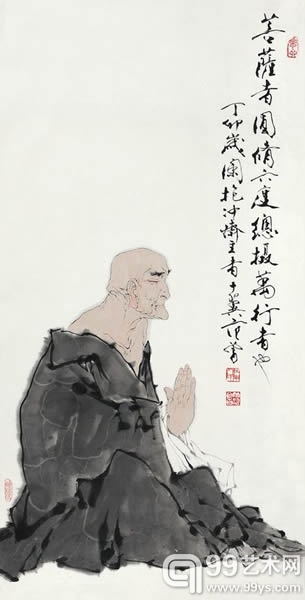 菩薩者圓脩六度總攝萬行者也
丁卯歲闌抱沖齋主者十翼范曾
99艺术网
www.99ys.com